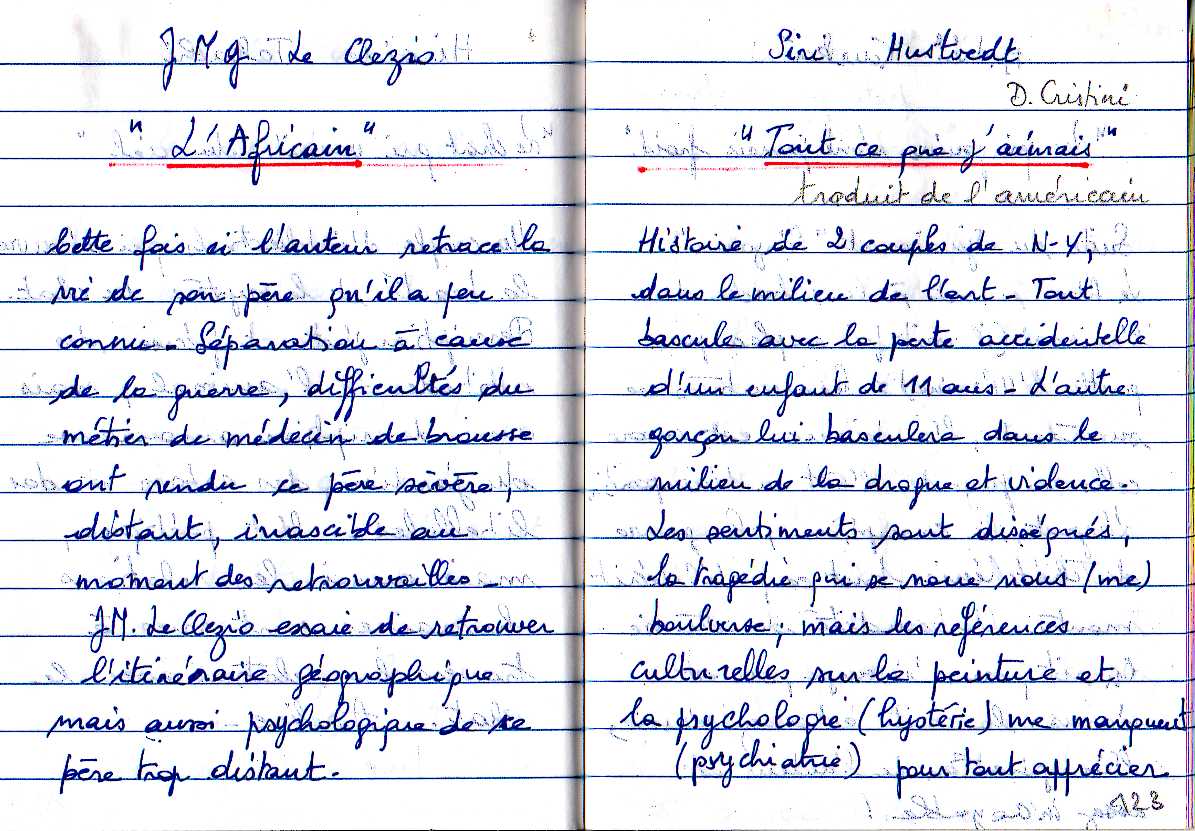 J M G Le Clezio
"L'Africain"
Cette fois ci l'auteur retrace la
vie de son père qu'il a peu
connu - Séparation à cause
de la guerre, difficultés du
métier de médecin de brousse
ont rendu ce père sévère,
distant, irascible au
moment des retrouvailles -
J.M. Le Clezio essaie de retrouver
l'itinéraire géographique
mais aussi psychologique de ce
père trop distant.
Siri Hustvedt
D. Cristini
"Tout ce que j'aimais"
traduit de l'américain
Histoire de 2 couples de N-Y,
dans le milieu de l'art - Tout
bascule avec la perte accidentelle
d'un enfant de 11 ans - L'autre
garçon lui basculera dans le
milieu de la drogue et violence.
Les sentiments sont disséqués,
la tragédie qui se noue nous (me)
boulverse; mais les références
culturelles sur la peinture et
la psychologie (hystérie) me manquent
(psychiatrie) pour tout apprécier.
123